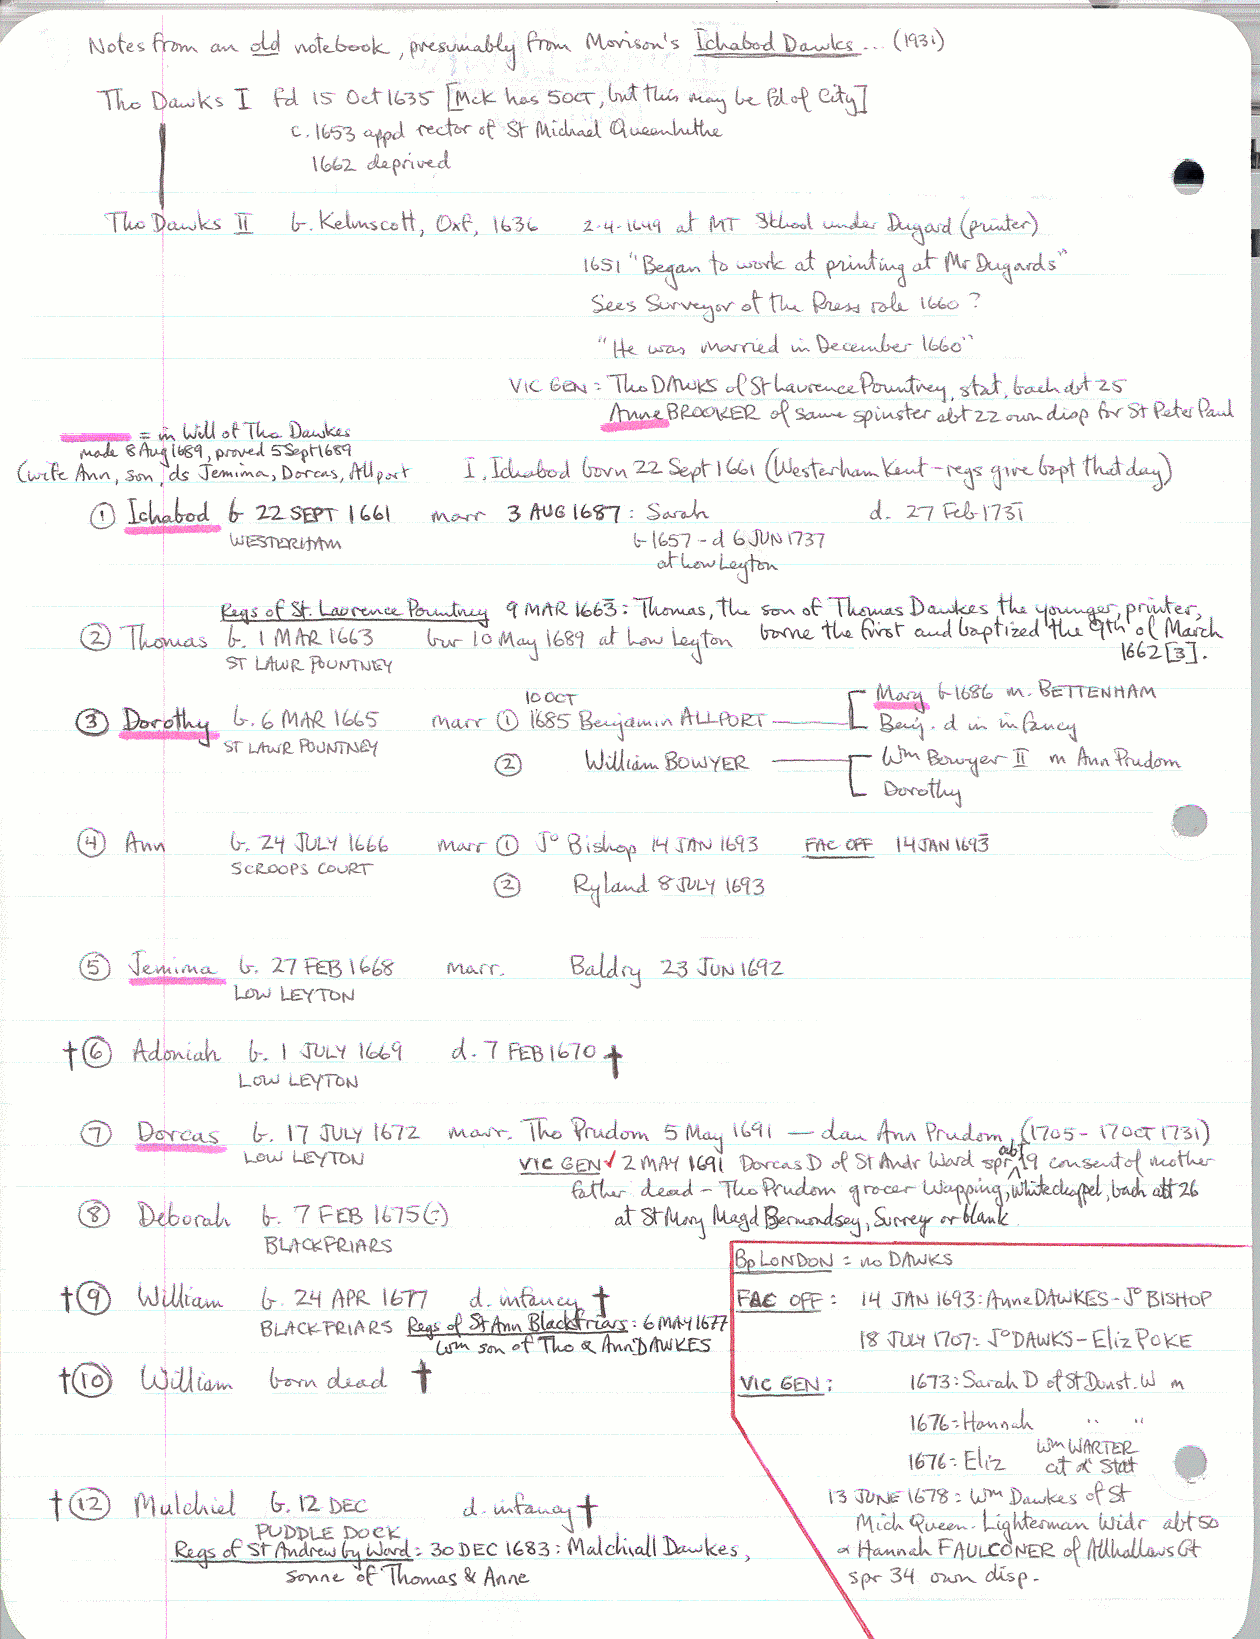 Notes from an old notebook, presumably from Morison's Ichabod Dawks... (1931)
Tho Dawks I fd 15 Oct 1635 [McK has 5 OCT, but this may be fd of City]
c. 1653 appd rector of St Michael Queenhithe
1662 deprived
Tho Dawks II b. Kelmscott, Oxf, 1636 2-4-1649 at MT School under Dugard (printer)
1651 "Began to work at printing at Mr Dugards"
Sees Surveyor of the Press role 1660?
"He was married in December 1660"
VIC GEN: Tho DAWKS of St Laurence Pountney, stat, bach abt 25
Anne BROOKER of same spinster abt 22 own disp for St Peter Paul
= in Will of Tho Dawkes
made 8 Aug 1689, proved 5 Sept 1689
(wife Ann, son, ds Jemima, Dorcas, Allport
I, Ichabod born 22 Sept 1661 (Westerham Kent - regs give bapt that day)
① Ichabod b 22 SEPT 1661 marr 3 AUG 1687: Sarah d. 27 Feb 1731
WESTERHAM b 1657 - d 6 JUN 1737
at Low Leyton
Regs of St. Lawrence Pountney 9 MAR 1663: Thomas, the son of Thomas Dawkes the younger, printer,
② Thomas b. 1 MAR 1663 bur 10 May 1689 at Low Leyton borne the first and baptized the 9th of March
ST LAWR POUNTNEY 1662[3].
10 OCT Mary b 1686 m. BETTENHAM
③ Dorothy b. 6 MAR 1665 marr ① 1685 Benjamin ALLPORT Benj. d in infancy
ST LAWR POUNTNEY
② William BOWYER Wm Bowyer II m Ann Prudom
Dorothy
④ Ann b. 24 JULY 1666 marr ① Jo Bishop 14 JAN 1693 FAC OFF 14 JAN 1693
SCROOPS COURT
② Ryland 8 JULY 1693
⑤ Jemima b. 27 FEB 1668 marr. Baldry 23 JUN 1692
LOW LEYTON
†⑥ Adoniah b. 1 JULY 1669 d. 7 FEB 1670 †
LOW LEYTON
⑦ Dorcas b. 17 JULY 1672 marr. Tho Prudom 5 May 1691 — dau Ann Prudom (1705 - 17 OCT 1731)
LOW LEYTON VIC GEN ✓ 2 MAY 1691 Dorcas D of St Andr Ward spr abt 19 consent of mother
father dead - Tho Prudom grocer Wapping, Whitechapel, bach abt 26
⑧ Deborah b. 7 FEB 1675(-) at St Mary Magd Bermondsey, Surrey or blank
BLACKFRIARS
†⑨ William b. 24 APR 1677 d. infancy †
BLACKFRIARS Regs of St Ann Blackfriars: 6 MAY 1677
Wm son of Tho & Ann DAWKES
†⑩ William born dead †
†⑫ Mulchiel b. 12 DEC d. infancy †
PUDDLE DOCK
Regs of St Andrew by Ward: 30 DEC 1683: Malchiall Dawkes,
sonne of Thomas & Anne
Bp LONDON = no DAWKS
FAC OFF: 14 JAN 1693: Anne DAWKES - Jo BISHOP
18 JULY 1707: Jo DAWKS - Eliz POKE
VIC GEN: 1673: Sarah D of St Dunst. W m
1676: Hannah " "
1676: Eliz Wm WARTER
cit & Stat
13 JUNE 1678: Wm Dawkes of St
Mich Queen. Lighterman Widr abt 50
& Hannah FAULCONER of Allhallows Gt
spr 34 own disp.